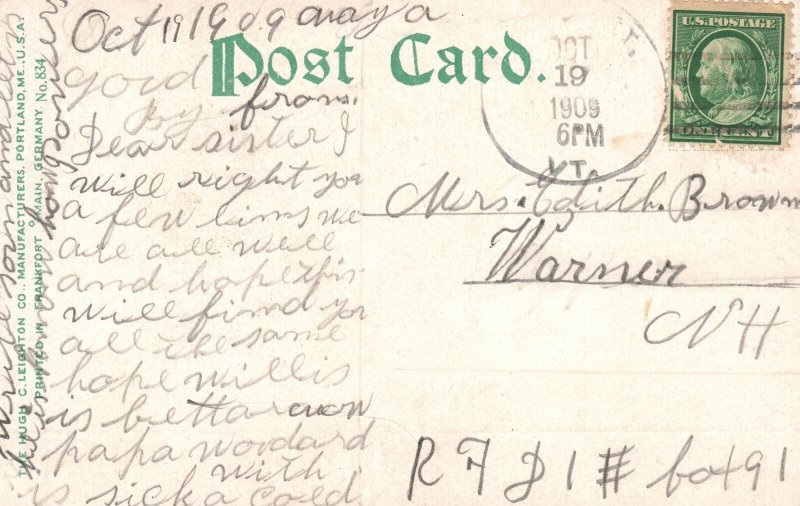 Oct 19 1909 maya
good
by from
Dear sister I
will right you
a few lins we
are all well
and hope this
will find you
all the same
hope willis
is bettar now
papa wodard
is sick with a cold
Post Card.
OCT
19
1909
6PM
VT.
U.S. POSTAGE
ONE CENT
Mrs. Edith. Brown
Warner
NH
R F D 1 # box 91
THE HUGH C. LEIGHTON CO., MANUFACTURERS, PORTLAND, ME., U.S.A.
PRINTED IN FRANKFORT O/MAIN, GERMANY. No. 834
write soon and let